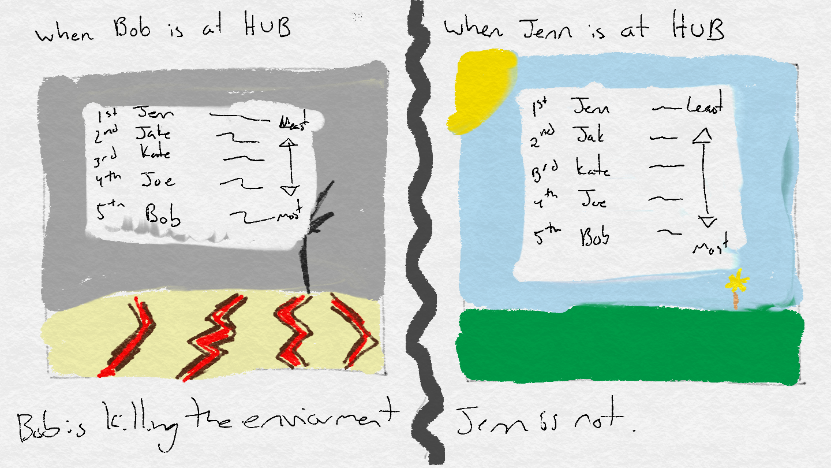 when Bob is at HUB
1st Jenn Least
2nd Jake
3rd Kate
4th Joe
5th Bob most
Bob is killing the enviarment
when Jenn is at HUB
1st Jenn Least
2nd Jak
3rd Kate
4th Joe
5th Bob
Most
Jenn is not.